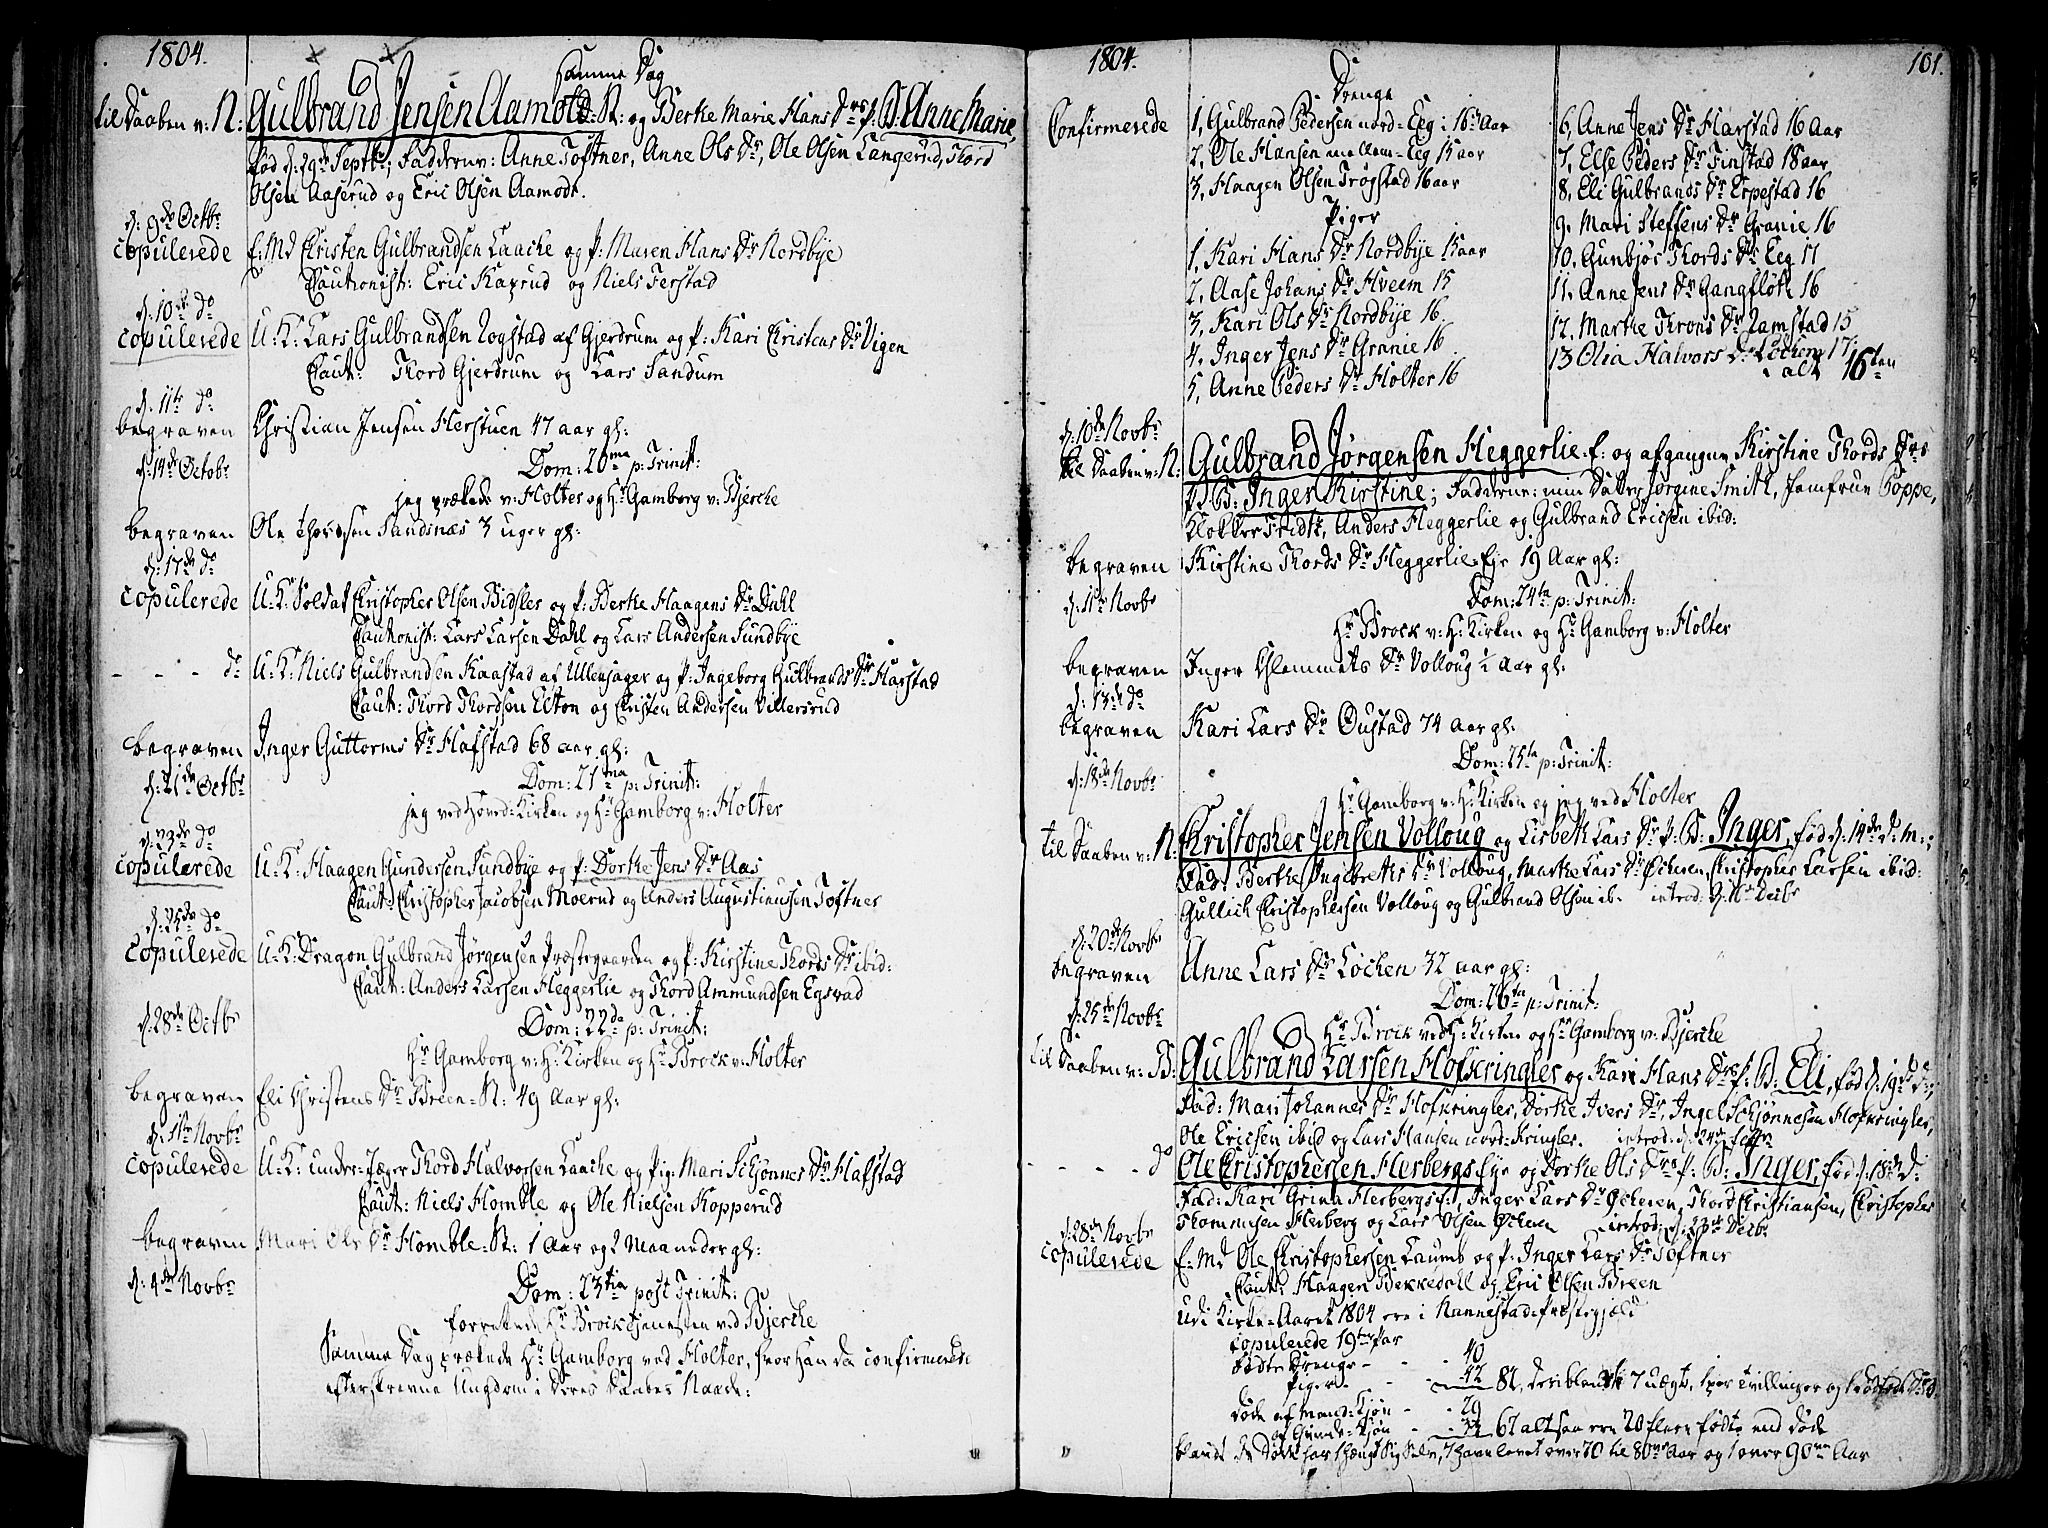 1804.
Samme Dag
til Daaben v: N: Gulbrand Jensen Aamodt-N: og Berthe Marie Hans Drs p: B: Anne Marie,
fød d: 29de Septbr; Fadderne: Anne Toftner, Anne Ols Dr, Ole Olsen Langerud, Thord
Olsen Aaserud og Eric Olsen Aamodt.
d: 9de Octbr
copulerede E: Md Christen Gulbrandsen Laache og P: Maren Hans Dr Nordbye
Cautionist: Eric Kaxrud og Niels Ferstad
d: 10de do
copulerede U: K: Lars Gulbrandsen Rogstad af Gjerdrum og P: Kari Christens Dr Vigen
Caut: Thord Gjerdrum og Lars Sandum
d: 11te do
begraven Christian Jensen Herstuen 47 aar gl:
d: 14de Octobr Dom: 20ma p: Trinit:
jeg prækede v: Holter og Hr Gamborg v: Bjerche
begraven Ole Thordsen Sandsnæs 3 uger gl:
d: 17de do
copulerede U: K: Soldat Christopher Olsen Bidsler og P: Berthe Haagens Dr Dahl
Cautionist: Lars Larsen Dahl og Lars Andersen Sundbye
- - - do U: K: Niels Gulbrandsen Kaastad af Ullensager og P: Ingeborg Gulbrands Dr Harstad
Caut: Thord Thordsen Elton og Christen Andersen Villersrud
begraven Inger Guttorms Dr Hafstad 68 aar gl:
d: 21de Octbr Dom: 21ma p: Trinit:
jeg ved Hoved-Kirken og Hr Gamborg v: Holter
d: 23de do
copulerede U: K: Haagen Gundersen Sundbye og P: Dorthe Jens Dr Aas
Caut: Christopher Jacobsen Moerud og Anders Augustinussen Toftner
d: 25de do
copulerede U: K: Dragon Gulbrand Jørgensen Præstegaarden og P: Kirstine Thords Dr ibid:
Caut: Anders Larsen Heggerlie og Thord Ammundsen Egsvad
d: 28de Octbr Dom: 22da p: Trinit:
Hr Gamborg v: H: Kirken og Hr Brock v: Holter
begraven Eli Christens Dr Breen-N: 49 Aar gl:
d: 1ste Novbr
copulerede U: K: under-Jæger Thord Halvorsen Laache og Pig: Mari Schjønnes Dr Hafstad
Caut: Niels Homble og Ole Nielsen Kopperud
begraven Mari Ols Dr Homble-N: 1 Aar og 2 Maaneder gl:
d: 4de Novbr Dom: 23tia post Trinit:
forrettede Hr Brock tjenesten ved Bjerche
Samme Dag prækede Hr Gamborg ved Holter, hvor han da confirmerede
efterskrevne Ungdom i deres Daabes Naade:
1804. 101.
Confirmerede
Drenge
1, Gulbrand Pedersen nord-Eeg: 16½ Aar
2, Ole Hansen mellem-Eeg 15 aar
3, Haagen Olsen Trøgstad 16 aar
Piger
1, Kari Hans Dr Nordbye 15 aar
2, Aase Johans Dr Hveem 15
3, Kari Ols Dr Nordbye 16.
4, Inger Jens Dr Granie 16
5, Anne Peders Dr Holter 16
6, Anne Jens Dr Harstad 16 Aar
7, Else Peders Dr Finstad 18 aar
8, Eli Gulbrands Dr Erpestad 16
9, Mari Steffens Dr Granie 16
10, Gunbjør Thords Dr Eeg 17
11, Anne Jens Dr Gangfløt 16
12, Marthe Throns Dr Ramstad 15
13 Olia Halvors Dr Løchen 17:
i alt 16ten
d: 10de Novbr
til Daaben v: N: Gulbrand Jørgensen Heggerlie-E: og afgangne Kirstine Thords Drs
p: B: Inger Kirstine; Fadderne: min Datter Jørgine Smith, Jomfrue Coppe,
Klokker Tridt, Anders Heggerlie og Gulbrand Ericsen ibid:
begraven Kirstine Thords Dr Heggerlie-Eje 19 Aar gl:
d: 11te Novbr Dom: 24ta p: Trinit:
Hr Brock v: H: Kirken og Hr Gamborg v: Holter
begraven Inger Clemmets Dr Volloug ½ Aar gl:
d: 13de do
begraven Kari Lars Dr Oustad 74 aar gl:
d: 18de Novbr Dom: 25ta p: Trinit:
Hr Gamborg v: H: Kirken og jeg ved Holter
til Daaben v: N: Christopher Jensen Volloug og Lisbeth Lars Dr p: B: Inger, fød d: 14de d: M:;
Fad: Berthe Ingebreths Dr Volloug, Marthe Lars Dr Ocheren, Christopher Larsen ibid:
Gullich Christophersen Volloug og Gulbrand Olsen ib. introd: d: 16de Decbr
d: 20de Novbr
begraven Anne Lars Dr Løchen 32 aar gl:
d: 25de Novbr Dom: 26ta p: Trinit:
Hr Brock ved H: Kirken og Hr Gamborg v: Bjerche
til Daaben v: B: Gulbrand Larsen Hofkringler og Kari Hans Drs p: B: Eli, fød d: 19de d:;
Fad: Mari Johannes Dr Hofkringler, Dorthe Ivers Dr, Ingel Schjønnesen Hofkringler,
Ole Ericsen ibid og Lars Hansen nord-Kringler. introd: d: 24de
- - - - do Ole Christophersen Herbergs Eje og Dorthe Ols Drs p: B: Inger, fød d: 18de d:
Fad: Kari Grina Herbergs E:, Inger Lars Dr Ocheren, Thord Christiansen, Christopher
Thommesen Herberg og Lars Olsen Ocheren introd: d: 23de Decbr
d: 28de Novbr
copulerede E: Md Ole Christophersen Laumb og P: Inger Lars Dr Toftner
Caut: Haagen Bekkedahl og Eric Olsen Breen
Udi Kirke-Aaret 1804 ere i Nannestads Præstegjæld
copulerede 19ten Par
Fødte Drenge - - - 40
Piger - - - 42 82, deriblandt 7 uægte, 1 par Tvillinger og
Døde af Mand-Kjøn - - 29
af Qvinde-Kjøn - 33 62 altsaa ere 20 flere fødte end døde
blandt de Døde har 1 hængt sig selv, 7 have levet over 70 til 80ve Aar og 1 over 90ve Aar